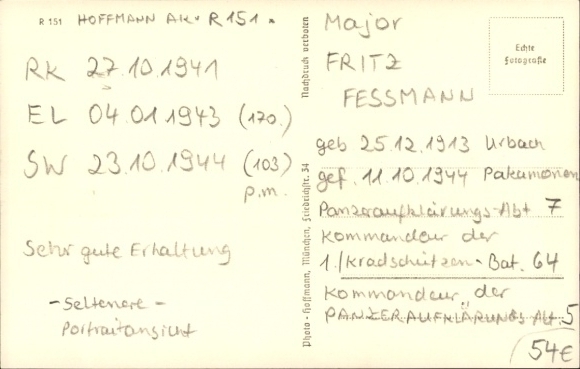 R 151 HOFFMANN AK. R 151.
RK 27.10.1941
EL 04.01.1943 (170.)
SW 23.10.1944 (103)
p.m.
Sehr gute Erhaltung
- Seltenere -
Portraitansicht
Photo - Hoffmann, München, Friedrichstr. 34
Nachdruck verboten
Echte
Fotografie
Major
FRITZ
FESSMANN
geb 25.12.1913 Urbach
gef. 11.10.1944
Panzeraufklärungs-Abt 7
Kommandeur der
1./Kradschützen-Bat. 64
Kommandeur der
PANZERAUFKLÄRUNGS Abt. 5
54€